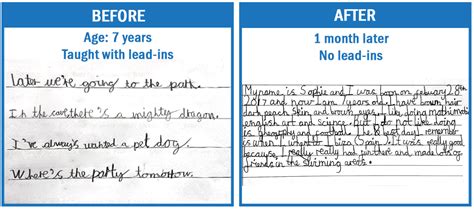 BEFORE
Age: 7 years
Taught with lead-ins
Later we're going to the path.
In the cave, there is a mighty dragon.
I've always wanted a pet dog.
Where's the party tomorrow.
AFTER
1 month later
No lead-ins
My name is Sophie and I was born on 28th
2017 and now I am 7 years old. I have hair
dark peach skin and brown eyes. I like doing
english art and science. But I do not like doing
is Geography and football. The best day I remember
is when I went to Ibiza Spain. It was really good
because I really really had fun there and made lots of
friends in the swimming